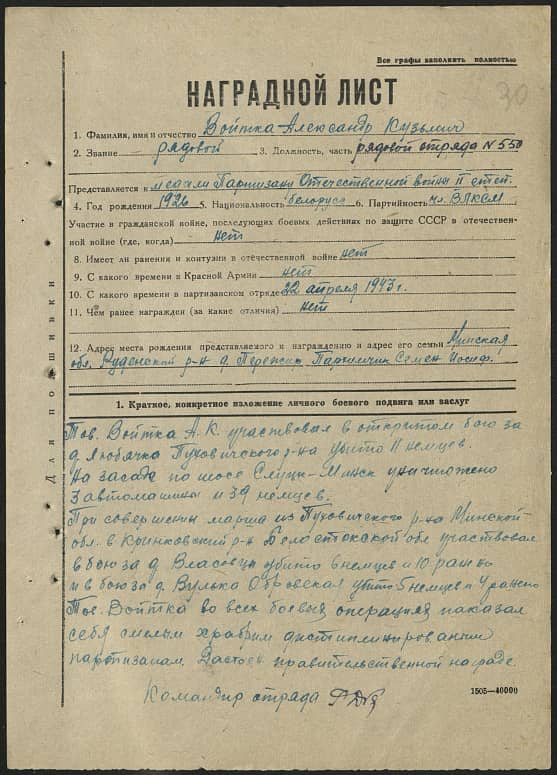 Все графы заполнить полностью
30
НАГРАДНОЙ ЛИСТ
1. Фамилия, имя и отчество Войтка Александр Кузьмич
2. Звание рядовой 3. Должность, часть рядовой отряда N 550
Представляется к медали Партизану Отечественной войны II степ.
4. Год рождения 1926 5. Национальность белорус 6. Партийность чл. ВЛКСМ
Участие в гражданской войне, последующих боевых действиях по защите СССР в отечествен-
ной войне (где, когда) нет
8. Имеет ли ранения и контузии в отечественной войне нет
9. С какого времени в Красной Армии нет
10. С какого времени в партизанском отряде 22 апреля 1943 г.
11. Чем ранее награжден (за какие отличия) нет
12. Адрес места рождения представляемого к награждению и адрес его семьи Минская
обл. Руденский р-н д. Пархимчик Семен Иосиф.
1. Краткое, конкретное изложение личного боевого подвига или заслуг
Тов. Войтка А.К. участвовал в открытом бою за
д Любячка Пуховичского р-на убито 11 немцев.
На засаде по шосе Слуцк-Минск уничтожено
3 автомашины и 39 немцев.
При совершены марша из Пуховичского р-на Минской
обл. в Кринковский р-н Белостокской обл участвовал
в бою за д Власовцы убито 6 немцев и 10 ранено
и в бою за д Вулька Обровская убито 5 немцев и 4 ранено
Тов. Войтка во всех боевых операциях паказал
себя смелым храбрим дистиплинированым
партизанам. Достоен правительственной награде.
Командир отряда
1505—40000
Для подшивки